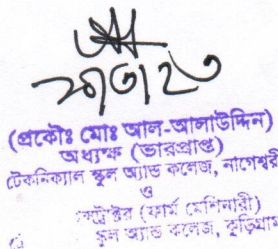 (প্রকৌঃ মোঃ আল-আলাউদ্দিন)
অধ্যক্ষ (ভারপ্রাপ্ত)
টেকনিক্যাল স্কুল অ্যান্ড কলেজ, নাগেশ্বরী
ও
(ফার্ম মেশিনারী)
অ্যান্ড কলেজ, কুড়িগ্রাম